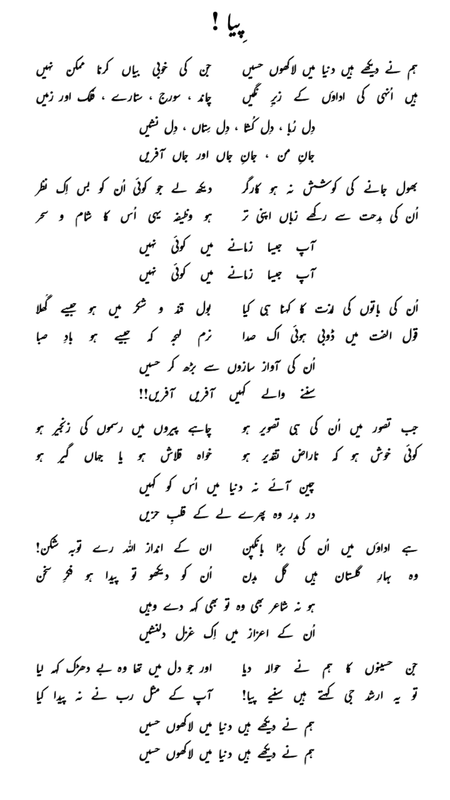 پیا !
ہم نے دیکھے ہیں دنیا میں لاکھوں حسیں جن کی خوبی بیاں کرنا ممکن نہیں
ہیں اُنہی کی اداؤں کے زیرِ نگیں چاند ، سورج ، ستارے ، فلک اور زمیں
دل رُبا ، دل کُشا ، دل ستاں ، دل نشیں
جانِ من ، جانِ جاں اور جاں آفریں
بھول جانے کی کوشش نہ ہو کارگر دیکھ لے جو کوئی اُن کو بس اِک نظر
اُن کی مدحت سے رکھے زباں اپنی تر ہو وظیفہ یہی اُس کا شام و سحر
آپ جیسا زمانے میں کوئی نہیں
آپ جیسا زمانے میں کوئی نہیں
اُن کی باتوں کی لذت کا کہنا ہی کیا بول قند و شکر میں ہو جیسے گُھلا
قولِ الفت میں ڈوبی ہوئی اک صدا نرم لہجہ کہ جیسے ہو بادِ صبا
اُن کی آواز سازوں سے بڑھ کر حسیں
سننے والے کہیں آفریں آفریں!!
جب تصور میں اُن کی ہی تصویر ہو چاہے پیروں میں رسموں کی زنجیر ہو
کوئی خوش ہو کہ ناراض تقدیر ہو خواہ قلاش ہو یا جہاں گیر ہو
چین آئے نہ دنیا میں اُس کو کہیں
در بدر وہ پھرے لے کے قلبِ حزیں
ہے اداؤں میں اُن کی بڑا بانکپن ان کے انداز اللہ رے توبہ شکن!
وہ بہارِ گلستان میں گل بدن اُن کو دیکھو تو پیدا ہو فکرِ سخن
ہو نہ شاعر بھی وہ تو بھی کہہ دے وہیں
اُن کے اعزاز میں اِک غزل دلنشیں
جن حسینوں کا ہم نے حوالہ دیا اور جو دل میں تھا وہ بے دھڑک کہہ لیا
تو یہ ارشد جی کہتے ہیں سنیے پیا! آپ کے مثل رب نے نہ پیدا کیا
ہم نے دیکھے ہیں دنیا میں لاکھوں حسیں
ہم نے دیکھے ہیں دنیا میں لاکھوں حسیں